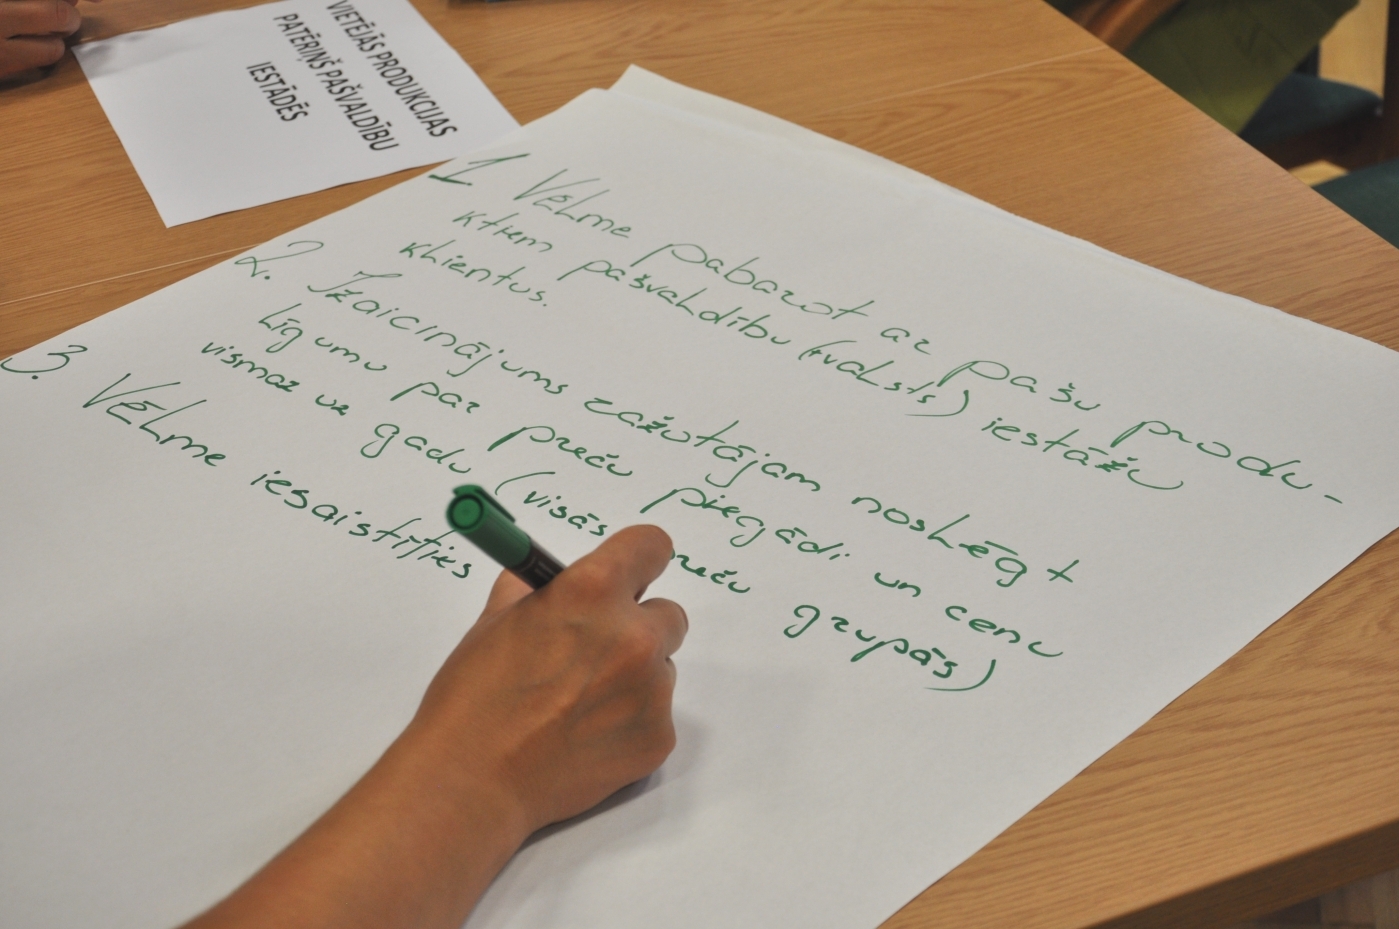 VIETĒJĀS PRODUKCIJAS
PATĒRIŅŠ PAŠVALDĪBU
IESTĀDĒS
1. Vēlme pabarot ar pašu produ-
ktiem pašvaldību (+valsts) iestāžu
klientus.
2. Izaicinājums ražotājam noslēgt
līgumu par preču piegādi un cenu
vismaz uz gadu (visās preču grupās)
3. Vēlme iesaistīties